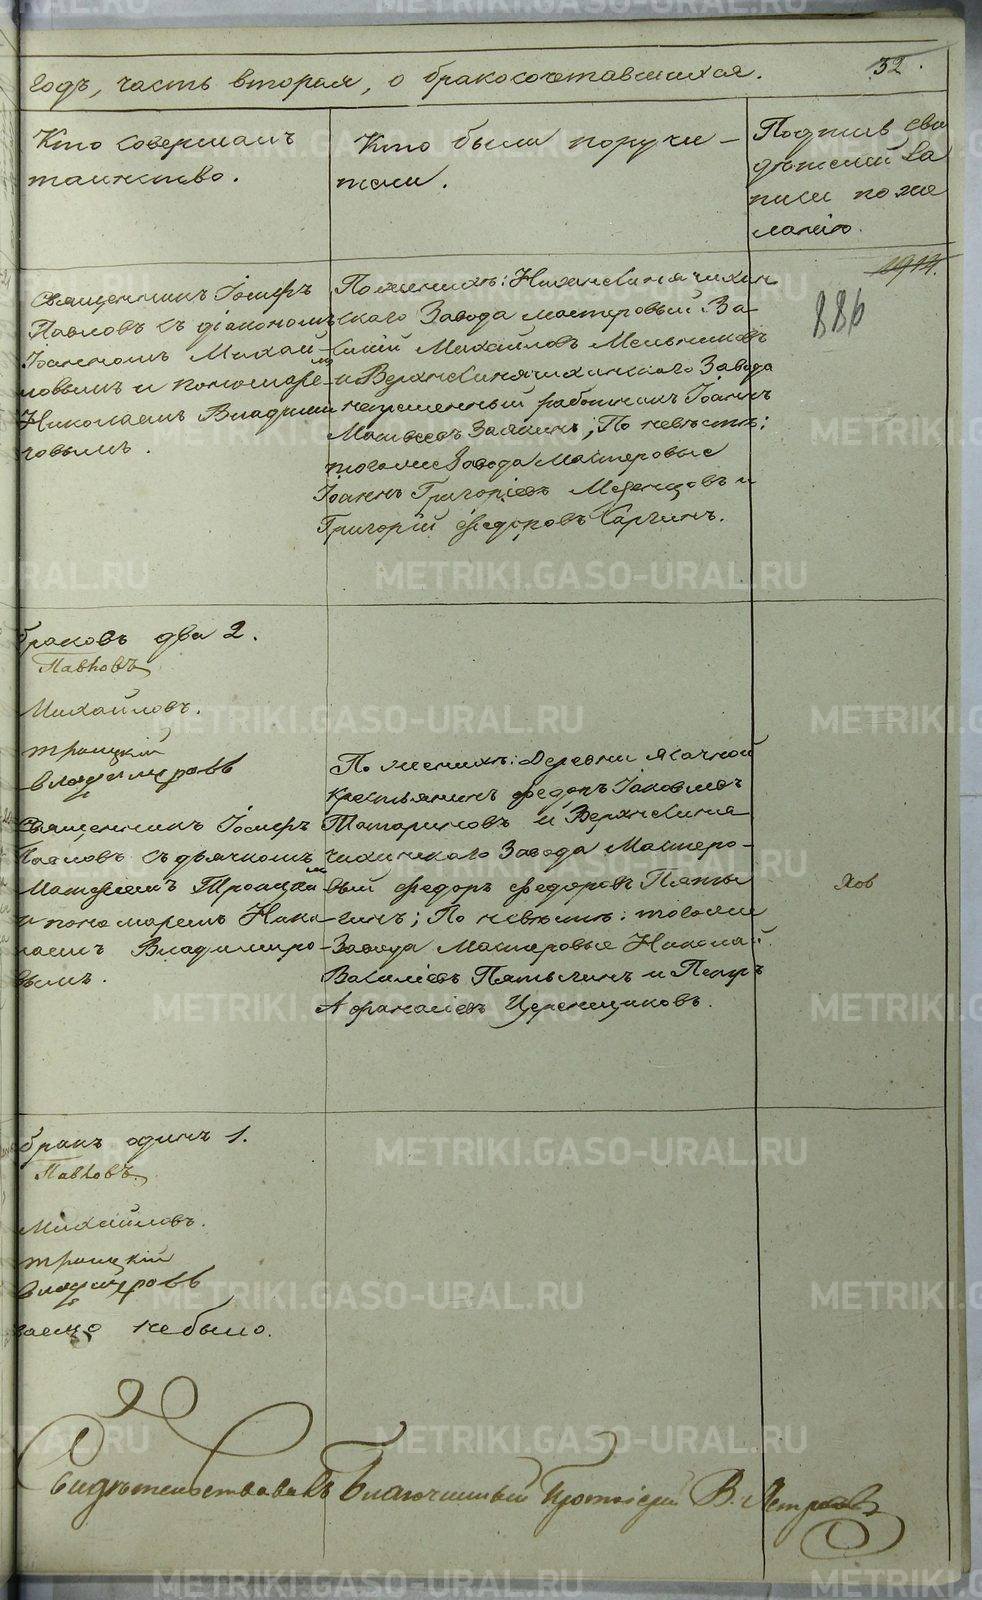 годъ, часть вторая, о бракосочетавшихся.
32.
Кто совершалъ
таинство.
Кто были поручи-
тели.
Подпись сви
дѣтелей за
писи по же
ланію.
1914.
886
Священникъ Іосифъ
Павловъ съ діакономъ
Іоанномъ Михай-
ловымъ и пономаремъ
Николаемъ Владими
ровымъ.
По женихѣ: Нижнесинячихин
скаго Завода мастеровый За-
Михайловъ Мельниковъ
и Верхнесинячихинскаго Завода
непременный работникъ Іоаннъ
Матвеевъ Заякинъ; По невѣстѣ:
тогоже Завода Мастеровые
Іоаннъ Григоріевъ Меденцовъ и
Григорій Федоровъ Каргинъ.
браковъ два 2.
Павловъ
Михайловъ.
Троицкій
Владимировъ
Священникъ Іосифъ
Павловъ съ дьячкомъ
Матфеемъ Троицкимъ
и пономаремъ Нико-
лаемъ Владимиро-
вымъ.
По женихѣ: Деревни Ясачной
крестьянинъ Федоръ Іаковлевъ
Татариновъ и Верхнесиня-
чихинскаго Завода Мастеро-
вый Федоръ Федоровъ Пяты-
гинъ; По невѣстѣ: тогоже
Завода Мастеровые Николай
Василіевъ Пятыгинъ и Петръ
Афанасіевъ Черемщиковъ.
бракъ одинъ 1.
Павловъ.
Михайловъ.
Троицкій
Владимировъ
небыло.
Свидѣтельствовалъ Благочинный Протоіерей В.
METRIKI.GASO-URAL.RU